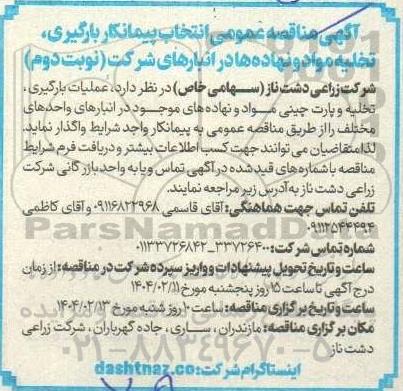 آگهی مناقصه عمومی انتخاب پیمانکار بارگیری،
تخلیه مواد و نهاده‌ها در انبارهای شرکت (نوبت دوم)
شرکت زراعی دشت ناز (سهامی خاص) در نظر دارد، عملیات بارگیری،
تخلیه و پارت چینی مواد و نهاده های موجود در انبارهای واحدهای
مختلف را از طریق مناقصه عمومی به پیمانکار واجد شرایط واگذار نماید.
لذا متقاضیان می توانند جهت کسب اطلاعات بیشتر و دریافت فرم شرایط
مناقصه با شماره های قید شده در آگهی تماس و یا به واحد بازرگانی شرکت
زراعی دشت ناز به آدرس زیر مراجعه نمایند.
تلفن تماس جهت هماهنگی: آقای قاسمی ۰۹۱۱۶۸۲۲۹۶۸ و آقای کاظمی
۰۹۱۱۲۵۴۴۴۹۴
شماره تماس شرکت: ۳۳۷۲۶۴۰۰-۰۱۱۳۳۷۲۶۸۴۲
ساعت و تاریخ تحویل پیشنهادات و واریز سپرده شرکت در مناقصه: از زمان
درج آگهی تا ساعت ۱۵ روز پنجشنبه مورخ ۱۴۰۴/۰۲/۱۱
ساعت و تاریخ برگزاری مناقصه: ساعت ۱۰ روز شنبه مورخ ۱۴۰۴/۰۲/۱۳
مکان برگزاری مناقصه: مازندران، ساری، جاده گهرباران، شرکت زراعی
دشت ناز
اینستاگرام شرکت: dashtnaz.co
ParsNamadData
۰۲۱-۸۸۳۴۹۶۷۰-۵